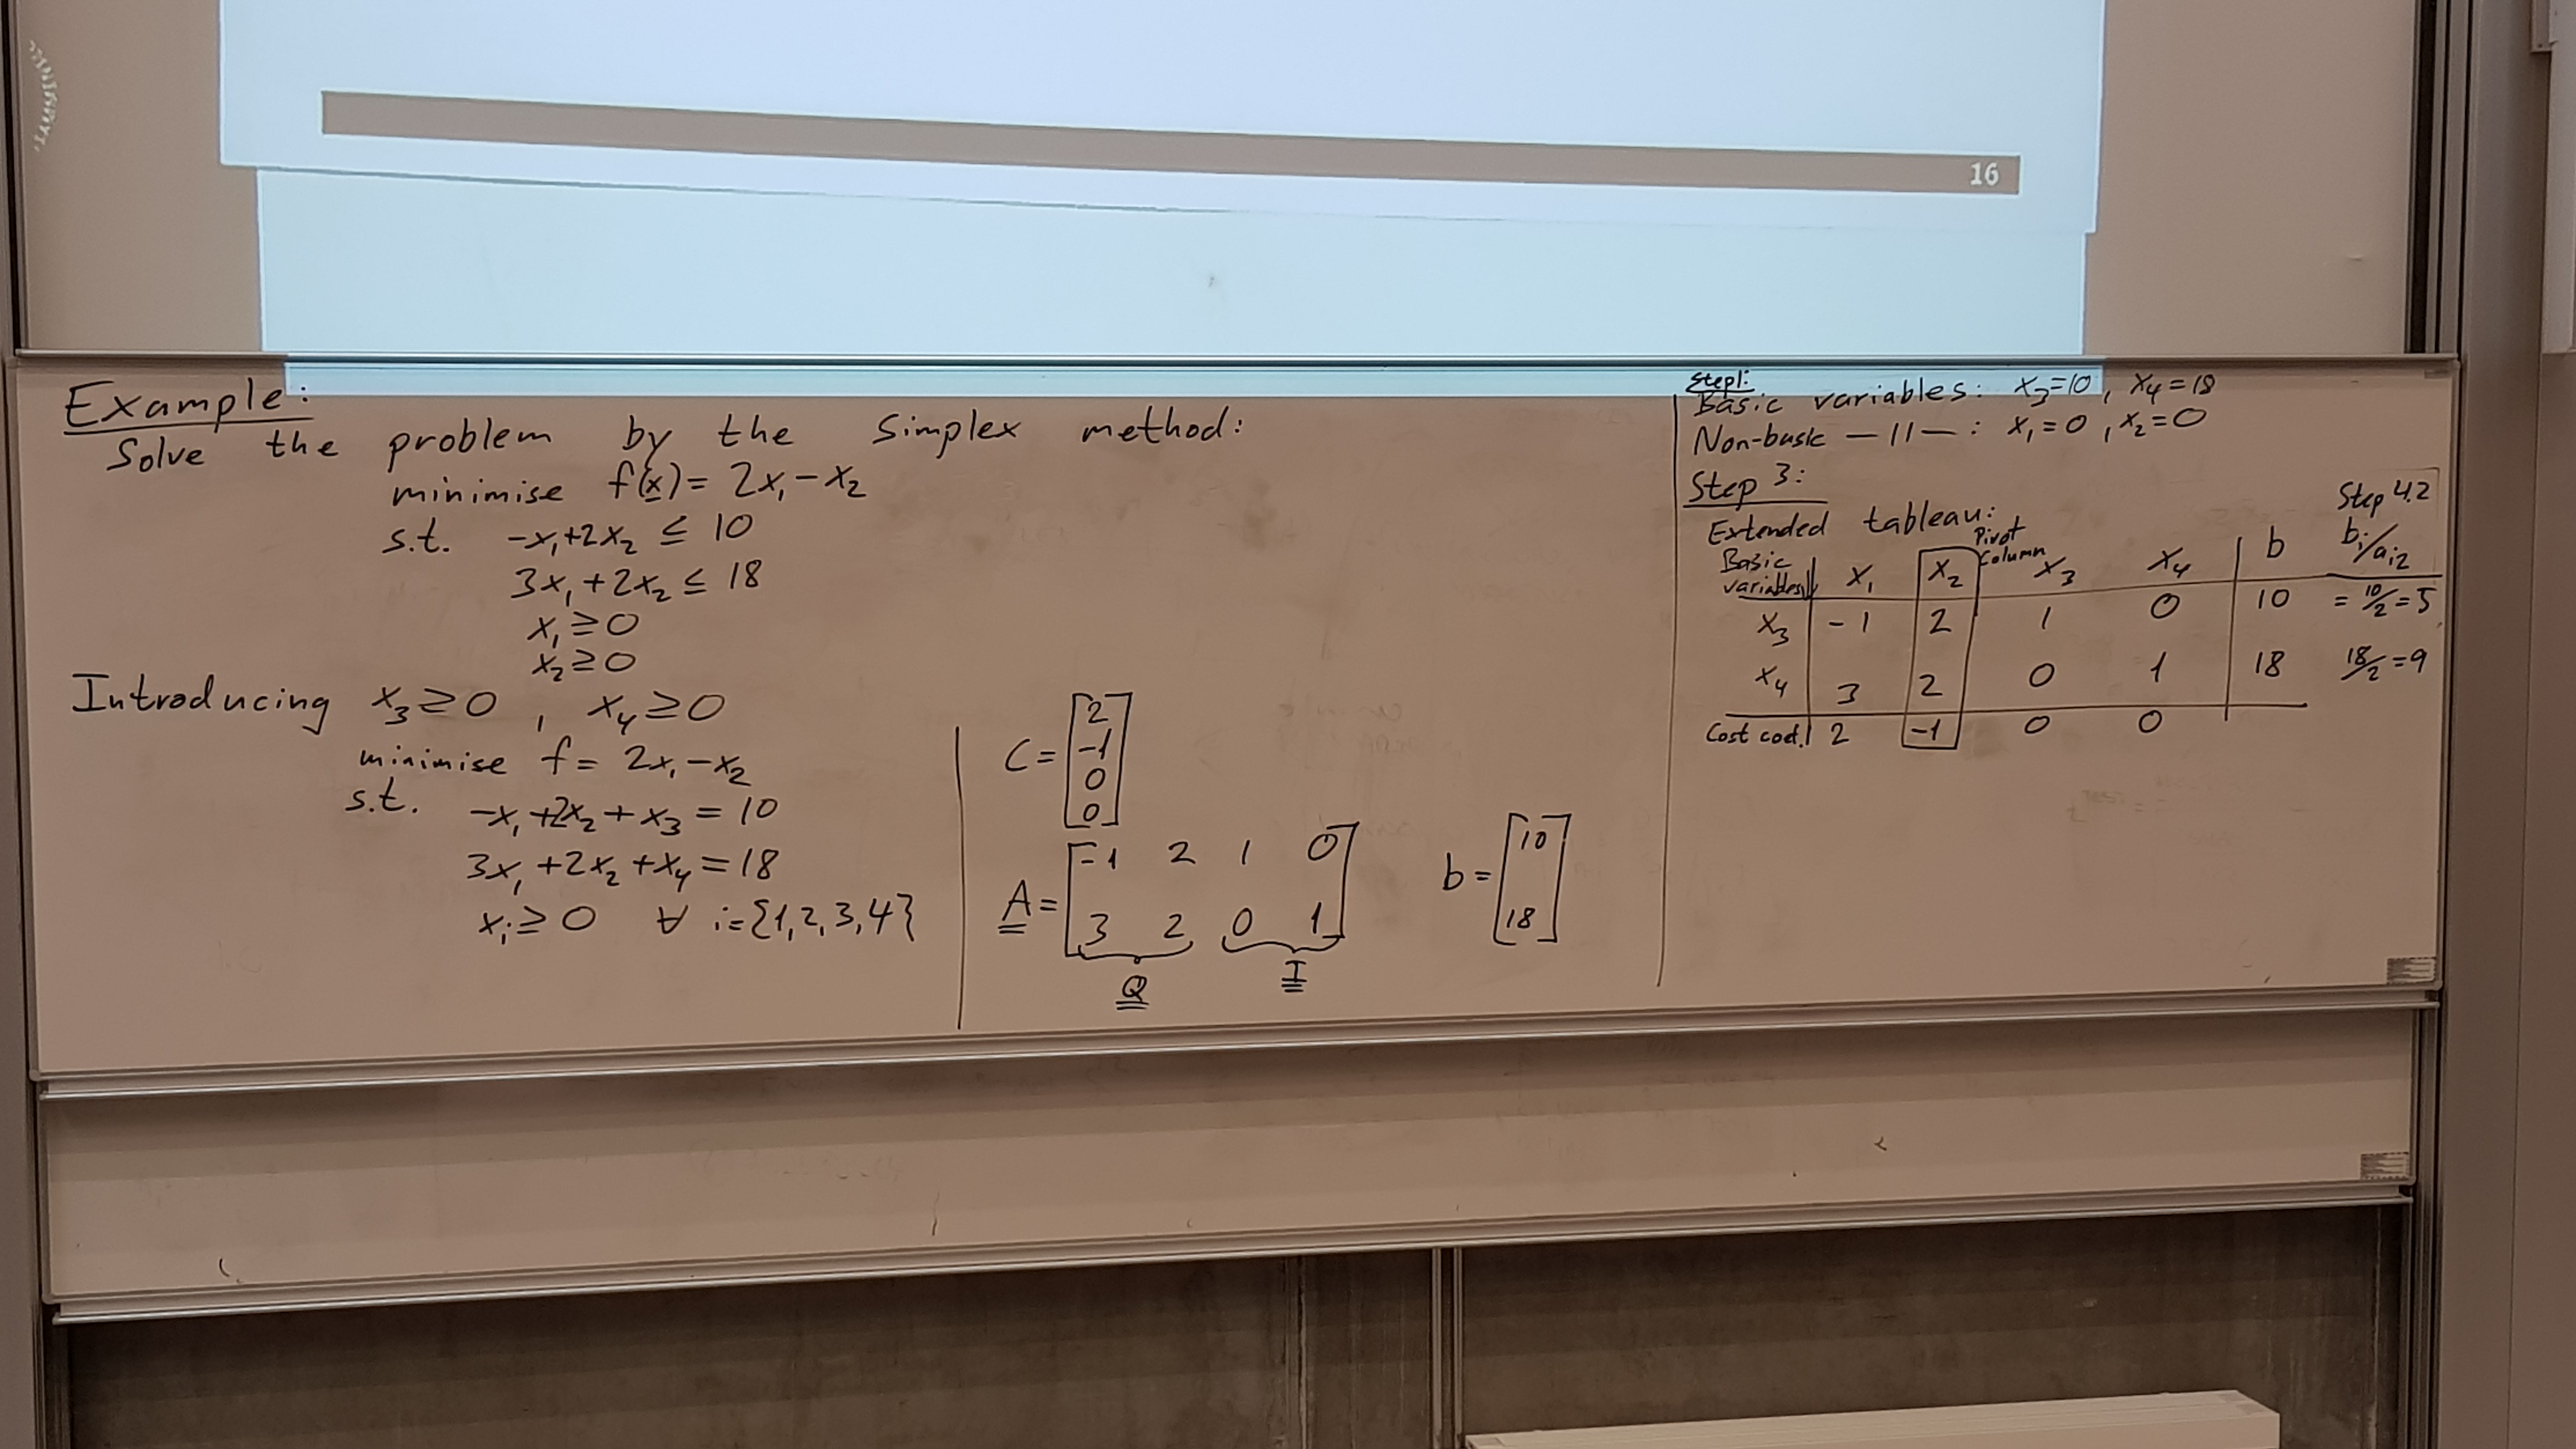 16
Example:
Solve the problem by the simplex method:
minimise f(x) = 2x₁ - x₂
s.t. -x₁+2x₂ ≤ 10
3x₁ + 2x₂ ≤ 18
x₁ ≥ 0
x₂ ≥ 0
Introducing x₃ ≥ 0 , x₄ ≥ 0
minimise f = 2x₁ - x₂
s.t. -x₁ +2x₂ + x₃ = 10
3x₁ +2x₂ +x₄ = 18
xᵢ ≥ 0 ∀ i={1,2,3,4}
C = [2
-1
0
0]
A = [-1 2 1 0
3 2 0 1]
Q I
b = [10
18]
Step1:
Basic variables: x₃=10 , x₄=18
Non-basic —11— : x₁=0 , x₂=0
Step 3:
Extended tableau:
Step 4.2
Pivot column
Basic variables x₁ x₂ x₃ x₄ b bᵢ/aᵢ₂
x₃ -1 2 1 0 10 = 10/2 = 5
x₄ 3 2 0 1 18 18/2 = 9
Cost coef. 2 -1 0 0